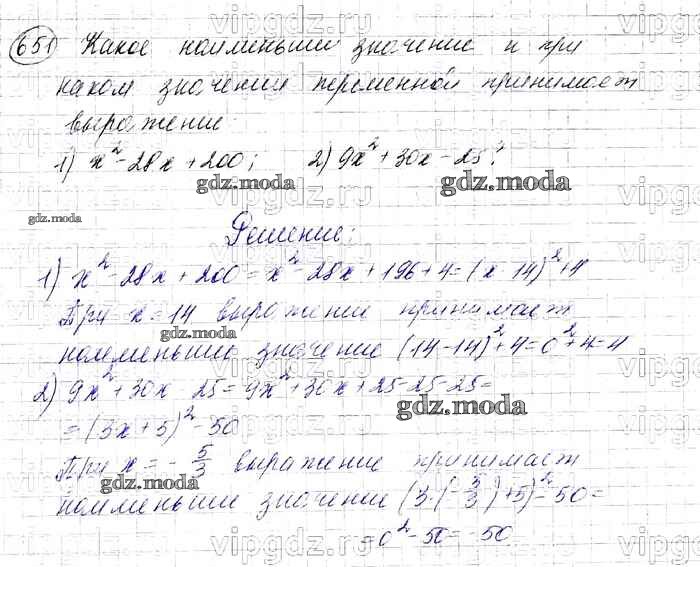 651 Какое наименьшее значение и при
каком значении переменной принимает
выражение:
1) x² - 28x + 200; 2) 9x² + 30x - 25?
gdz.moda gdz.moda
gdz.moda
Решение:
1) x² - 28x + 200 = x² - 28x + 196 + 4 = (x - 14)² + 4
При x = 14 выражение принимает
gdz.moda
наименьшее значение (14 - 14)² + 4 = 0² + 4 = 4
2) 9x² + 30x - 25 = 9x² + 30x + 25 - 25 - 25 =
gdz.moda
= (3x + 5)² - 50
При x = - 5/3 выражение принимает
gdz.moda
наименьшее значение (3·(-5/3) + 5)² - 50 =
= 0² - 50 = -50
vipgdz.ru